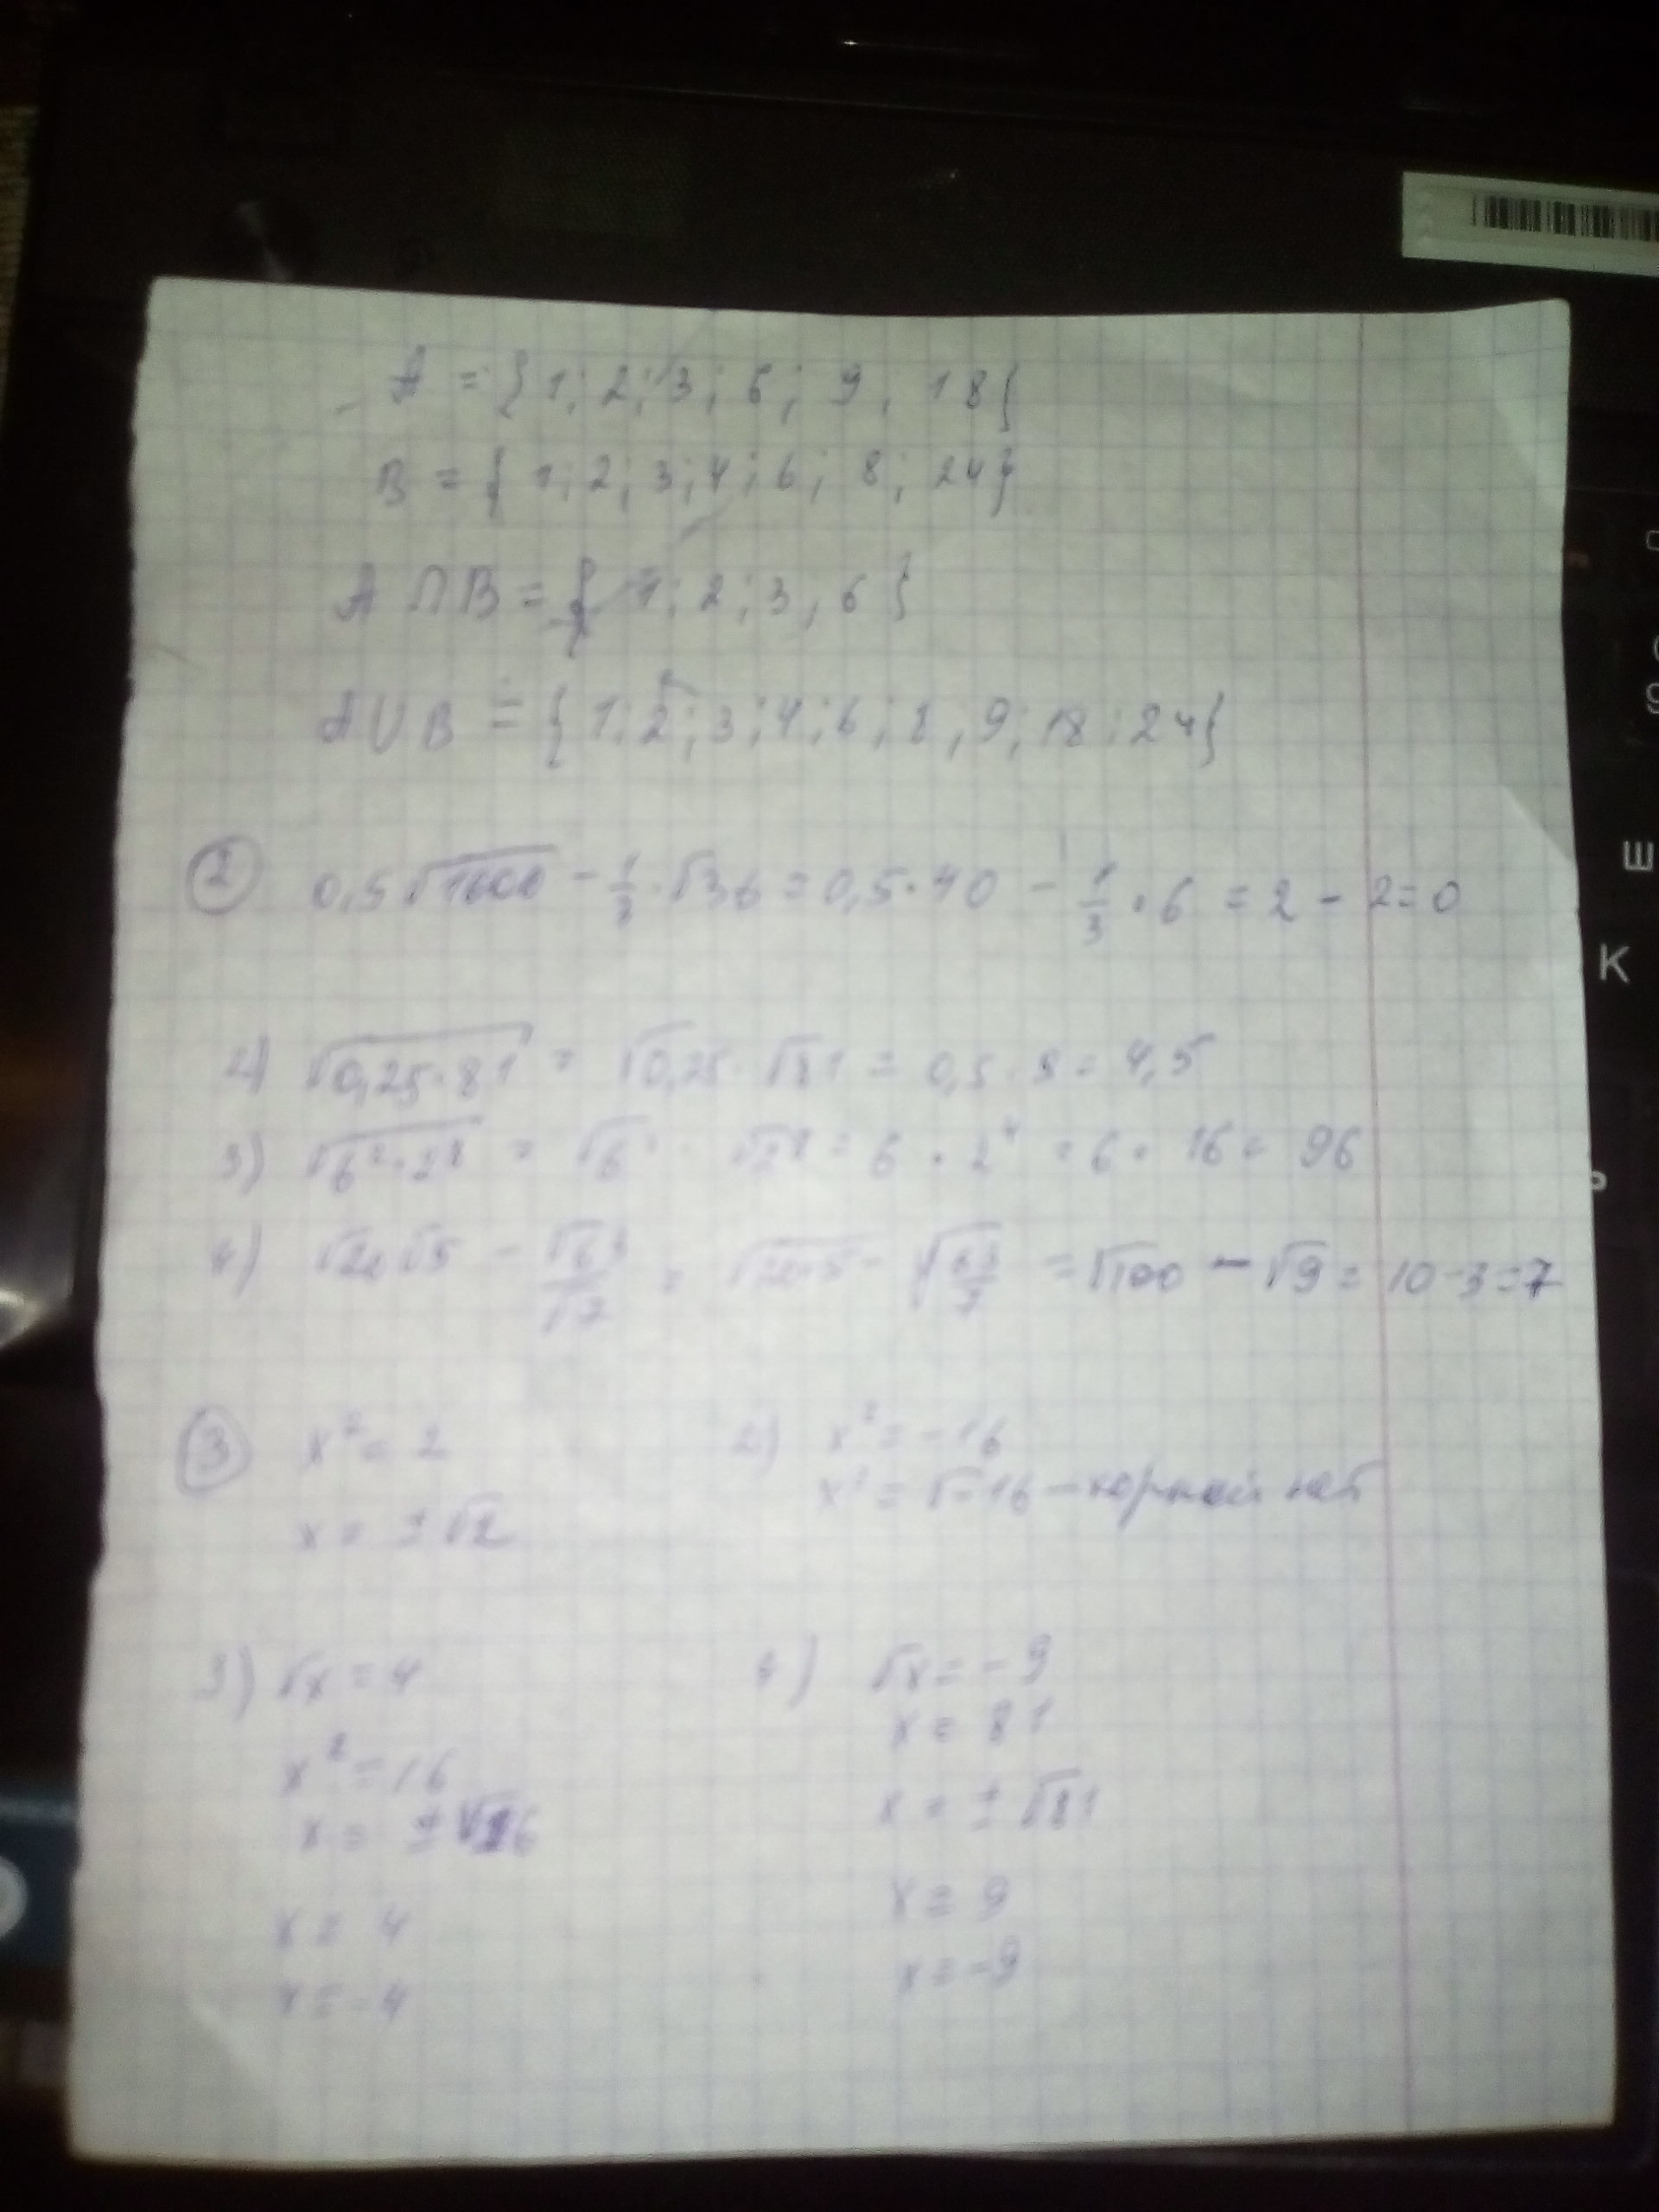 A = {1; 2; 3; 6; 9, 18{
B = { 1; 2; 3; 4; 6; 8; 24}
A ∩ B = { 1; 2; 3, 6 }
A ∪ B = {1; 2; 3; 4; 6; 8, 9; 18; 24}
② 0,5 √1600 - 1/3 · √36 = 0,5 · 40 - 1/3 · 6 = 2 - 2 = 0
2) √0,25 · 81 = √0,25 · √81 = 0,5 · 9 = 4,5
3) √6² · 2⁸ = √6² · √2⁸ = 6 · 2⁴ = 6 · 16 = 96
4) √20 √5 - √63/√7 = √20·5 - √63/7 = √100 - √9 = 10 - 3 = 7
③ x² = 2
x = ± √2
2) x² = - 16
x² = √-16 - корней нет
3) √x = 4
x² = 16
x = ± √16
x = 4
x = - 4
4) √x = - 9
x = 81
x = ± √81
x = 9
x = - 9
К
Ш